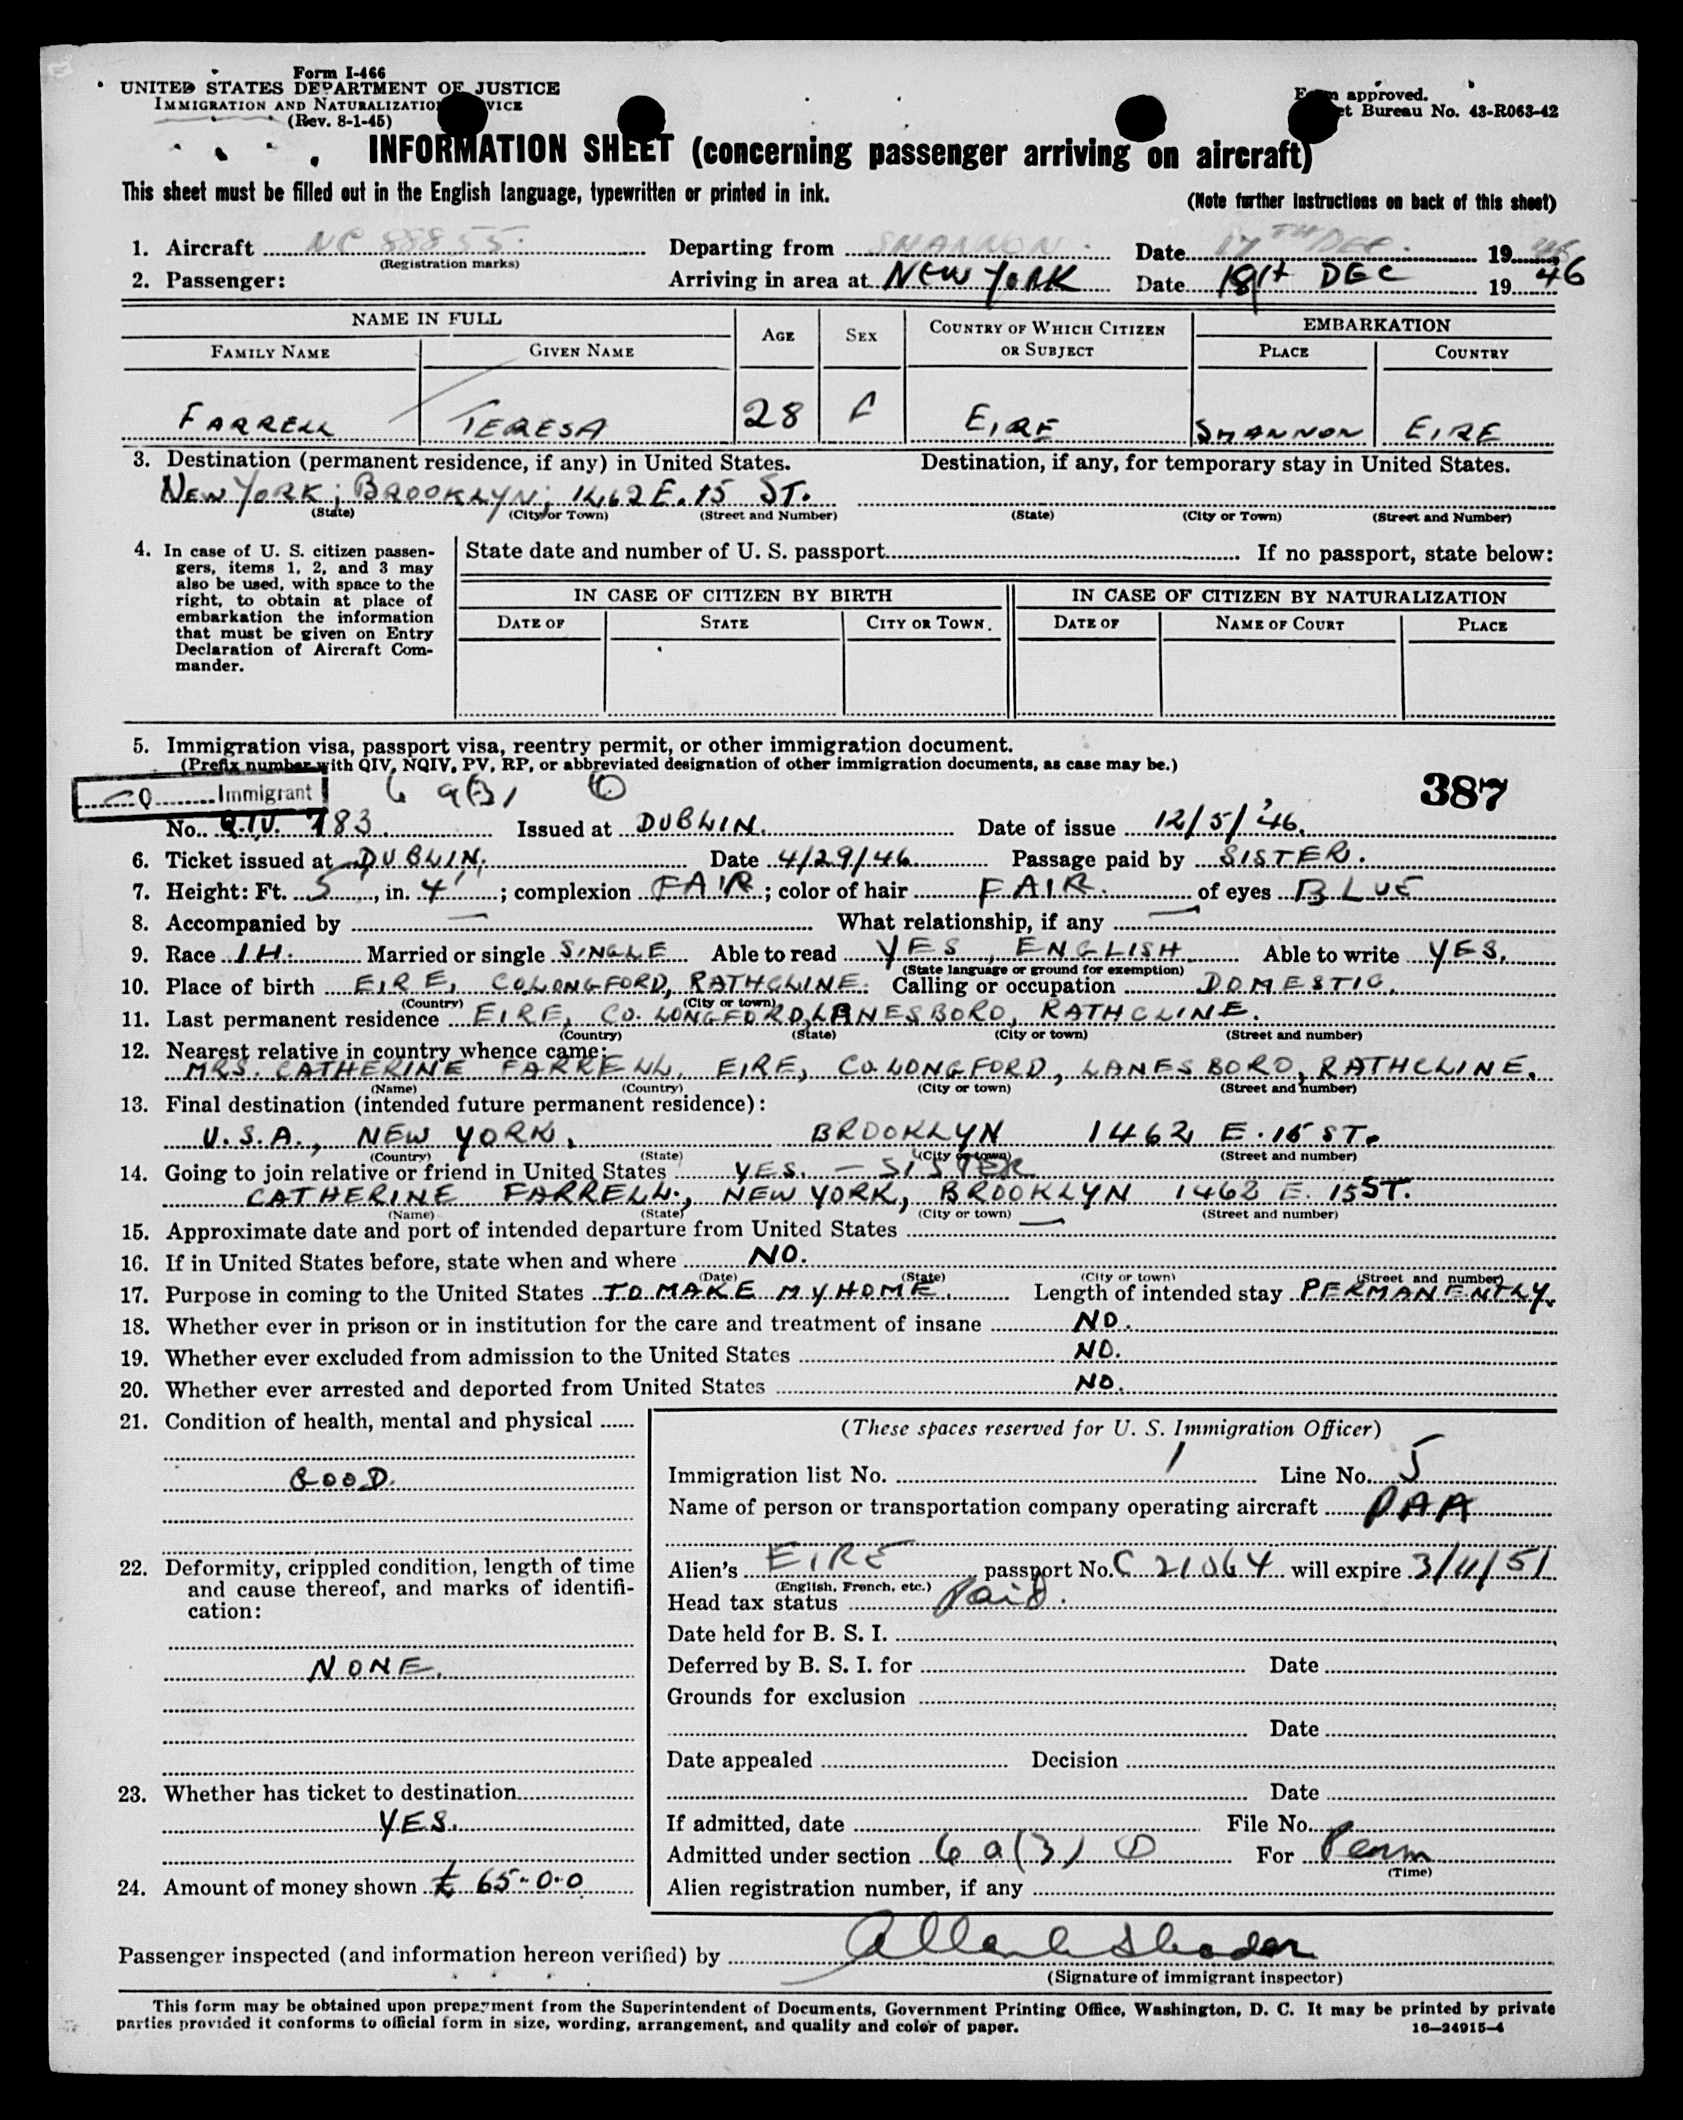 Form I-466
UNITED STATES DEPARTMENT OF JUSTICE
IMMIGRATION AND NATURALIZATION
(Rev. 8-1-45)
approved.
Bureau No. 43-R063-42
INFORMATION SHEET (concerning passenger arriving on aircraft)
This sheet must be filled out in the English language, typewritten or printed in ink.
(Note further instructions on back of this sheet)
1. Aircraft NC 88855. Departing from SHANNON. Date 17TH DEC. 1946
(Registration marks)
2. Passenger: Arriving in area at NEW YORK Date DEC 1946
NAME IN FULL AGE SEX COUNTRY OF WHICH CITIZEN OR SUBJECT EMBARKATION
FAMILY NAME GIVEN NAME PLACE COUNTRY
FARRELL TERESA 28 F EIRE SHANNON EIRE
3. Destination (permanent residence, if any) in United States. Destination, if any, for temporary stay in United States.
NEW YORK; BROOKLYN; 1462 E. 15 ST.
(State) (City or Town) (Street and Number) (State) (City or Town) (Street and Number)
4. In case of U. S. citizen passen-
gers, items 1, 2, and 3 may
also be used, with space to the
right, to obtain at place of
embarkation the information
that must be given on Entry
Declaration of Aircraft Com-
mander.
State date and number of U. S. passport If no passport, state below:
IN CASE OF CITIZEN BY BIRTH IN CASE OF CITIZEN BY NATURALIZATION
DATE OF STATE CITY OR TOWN. DATE OF NAME OF COURT PLACE
5. Immigration visa, passport visa, reentry permit, or other immigration document.
(Prefix number with QIV, NQIV, PV, RP, or abbreviated designation of other immigration documents, as case may be.)
Q Immigrant 6 a(3) 387
No. Q.I.V. 783. Issued at DUBLIN. Date of issue 12/5/'46.
6. Ticket issued at DUBLIN. Date 4/29/46 Passage paid by SISTER.
7. Height: Ft. 5', in. 4"; complexion FAIR; color of hair FAIR. of eyes BLUE
8. Accompanied by — What relationship, if any —
9. Race IH. Married or single SINGLE Able to read YES, ENGLISH Able to write YES.
(State language or ground for exemption)
10. Place of birth EIRE, CO LONGFORD, RATHCLINE. Calling or occupation DOMESTIC.
(Country) (City or town)
11. Last permanent residence EIRE, CO. LONGFORD, LANESBORO, RATHCLINE.
(Country) (State) (City or town) (Street and number)
12. Nearest relative in country whence came:
MRS. CATHERINE FARRELL, EIRE, CO. LONGFORD, LANESBORO, RATHCLINE.
(Name) (Country) (City or town) (Street and number)
13. Final destination (intended future permanent residence):
U.S.A., NEW YORK, BROOKLYN 1462 E. 15 ST.
(Country) (State) (City or town) (Street and number)
14. Going to join relative or friend in United States YES. — SISTER
CATHERINE FARRELL., NEW YORK, BROOKLYN 1462 E. 15 ST.
(Name) (State) (City or town) (Street and number)
15. Approximate date and port of intended departure from United States —
16. If in United States before, state when and where NO.
(Date) (State) (City or town) (Street and number)
17. Purpose in coming to the United States TO MAKE MY HOME. Length of intended stay PERMANENTLY.
18. Whether ever in prison or in institution for the care and treatment of insane NO.
19. Whether ever excluded from admission to the United States NO.
20. Whether ever arrested and deported from United States NO.
21. Condition of health, mental and physical
GOOD.
22. Deformity, crippled condition, length of time
and cause thereof, and marks of identifi-
cation:
NONE.
23. Whether has ticket to destination
YES.
24. Amount of money shown £ 65-0-0
(These spaces reserved for U. S. Immigration Officer)
Immigration list No. 1 Line No. 5
Name of person or transportation company operating aircraft PAA
Alien's EIRE passport No. C 21064 will expire 3/11/51
(English, French, etc.)
Head tax status Paid.
Date held for B. S. I.
Deferred by B. S. I. for Date
Grounds for exclusion
Date
Date appealed Decision
Date
If admitted, date File No.
Admitted under section 6 a(3) For Perm
(Time)
Alien registration number, if any
Passenger inspected (and information hereon verified) by
(Signature of immigrant inspector)
This form may be obtained upon prepayment from the Superintendent of Documents, Government Printing Office, Washington, D. C. It may be printed by private
parties provided it conforms to official form in size, wording, arrangement, and quality and color of paper. 16—24915-4